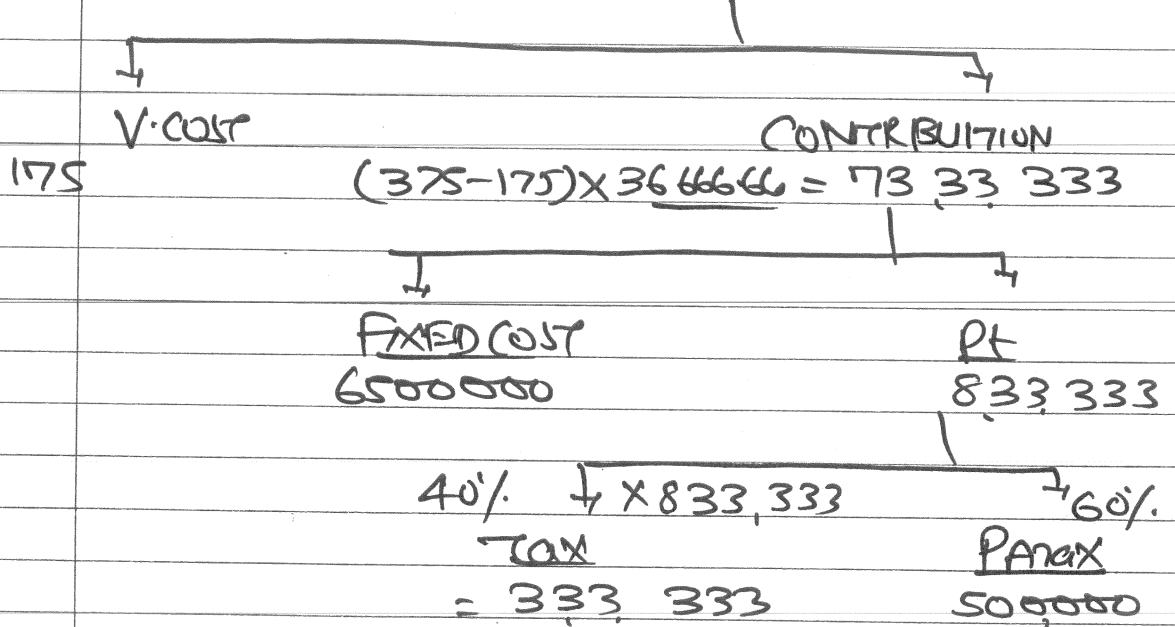 V.COST CONTRIBUITION
175 (375-175)×3666666 = 73,33,333
FIXED COST Pt
6500000 8,33,333
40% ×833,333 60%
Tax PATax
= 3,33,333 500,000